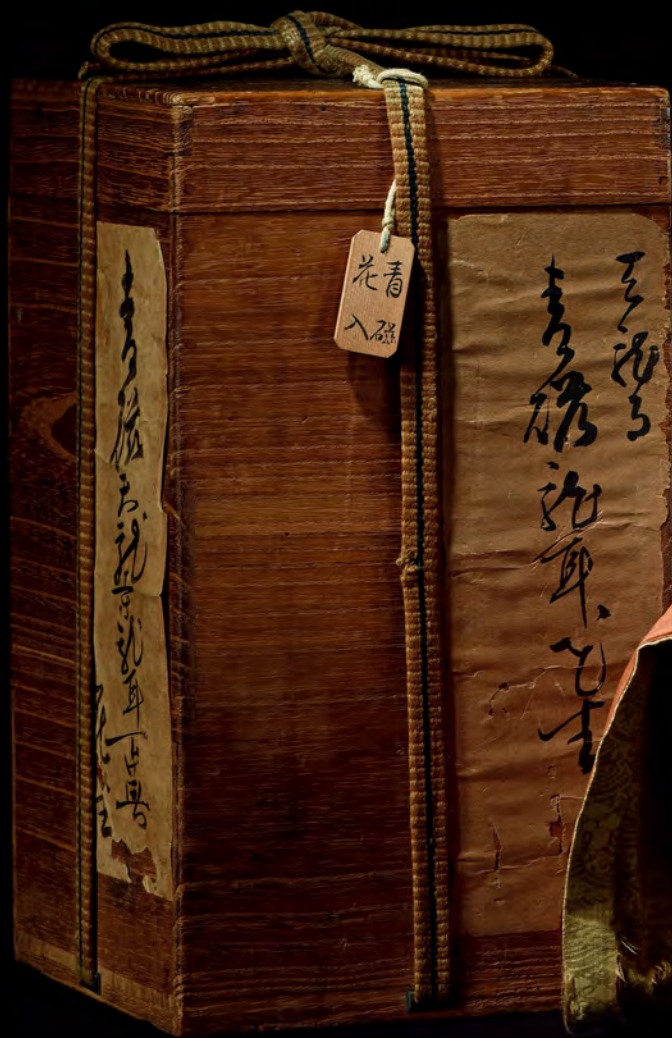 青磁
花入
天龍寺
青磁龍耳花生
青磁天龍寺龍耳
花生